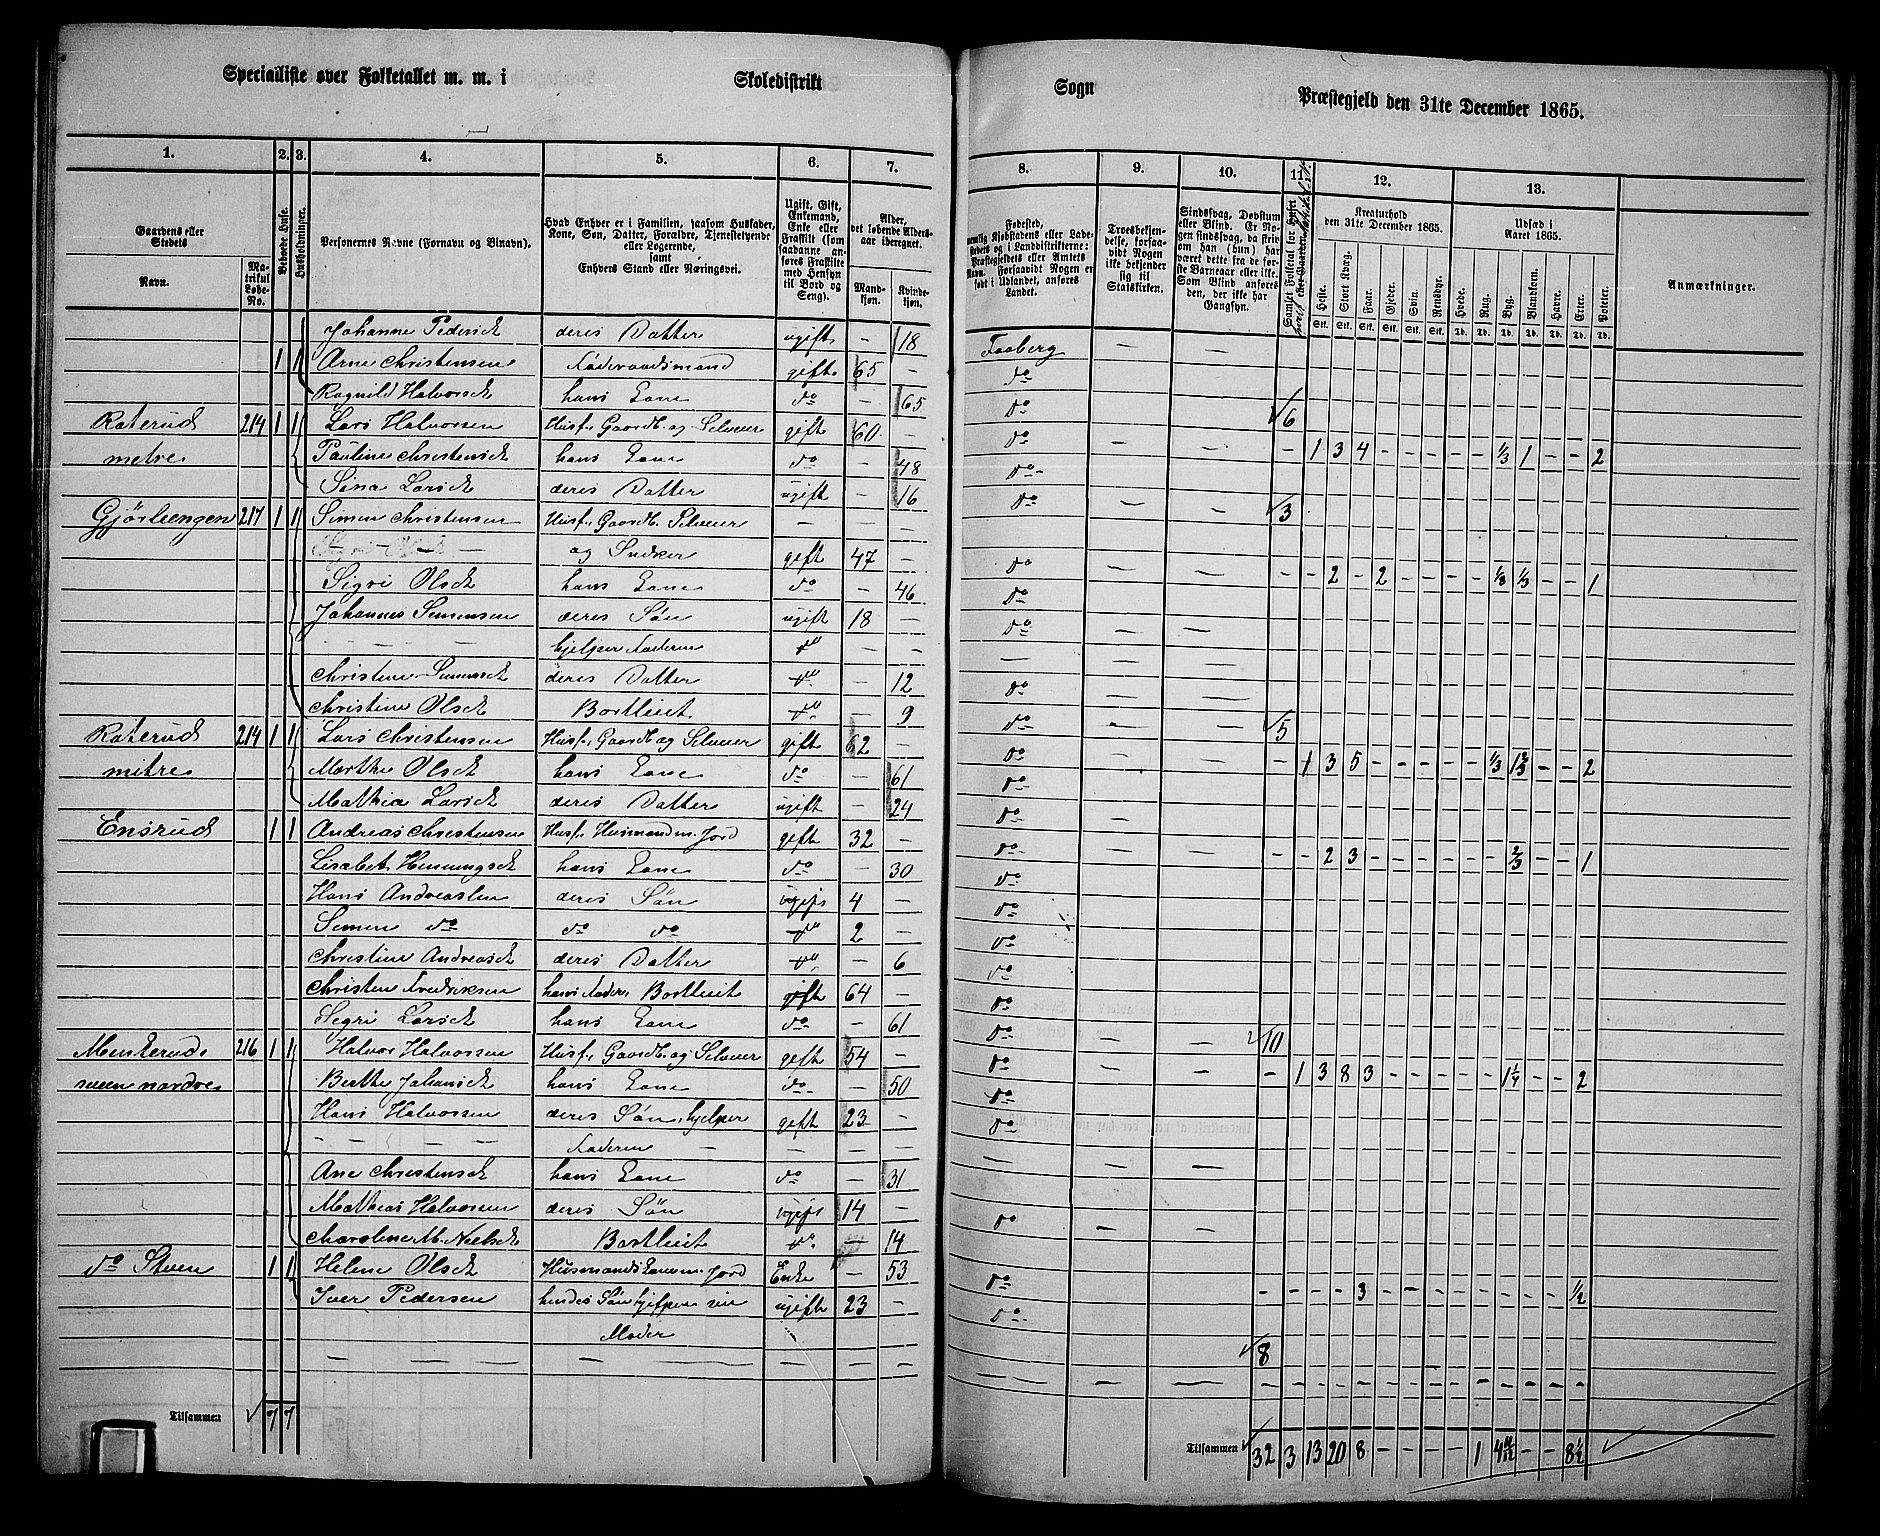 Specialliste over Folketallet m. m. i Skoledistrikt Sogn Præstegjeld den 31te December 1865.
1. 2. 3. 4. 5. 6. 7. 8. 9. 10. 11. 12. 13.
Gaardens eller Stedets
Navn.
Matrikul Løbe-No.
Beboede Huse.
Husholdninger.
Personernes Navne (Fornavn og Binavn).
Hvad Enhver er i Familien, saasom Husfader, Kone, Søn, Datter, Forældre, Tjenestetyende eller Logerende, samt Enhvers Stand eller Næringsvei.
Ugift, Gift, Enkemand, Enke eller Fraskilt (som saadanne anføres Fraskilte med Hensyn til Bord og Seng).
Alder, det løbende Aldersaar iberegnet.
Mandkjøn. Kvindekjøn.
Fødested,
Troesbekjendelse, forsaavidt Nogen ikke bekjender sig til Statskirken.
Sindssvag, Døvstum eller Blind.
Kreaturhold den 31te December 1865.
Heste. Stort Kvæg. Faar. Gjeder. Svin. Rensdyr.
Udsæd i Aaret 1865.
Hvede. Rug. Byg. Blandkorn. Havre. Erter. Poteter.
Anmærkninger.
Johanne Pedersdt deres Datter ugift — 18 Faaberg — —
1 1 Arne Christensen Føderaadsmand gift 65 — do
Ragnild Halvorsdt hans Kone do — 65 do 6
Roterud 214 1 1 Lars Halvorsen Husf. Gaardb. og Selveier gift 60 — do — — — 1 3 4 — — — — — 1/3 1 — — 2
metre Pauline Christensdt hans Kone do — 48 do
Sina Larsdt deres Datter ugift — 16 do — — 3
217 1 1 Simen Christensen Husf. Gaardb. Selveier — — —
og Snekker gift 47 — do — — — — 2 — 2 — — — — 1/3 1/3 — — 1
Sigri Olsdt hans Kone do — 46 do
Johannes Simensen deres Søn ugift 18 — do — —
— — hjelper Faderen do — — — — —
Christine Simensdt deres Datter do — 12 do — —
Christine Olsdt Bortleiet do — 9 do — — 5
Roterud 214 1 1 Lars Christensen Husf. Gaardb. og Selveier gift 62 — do — — — 1 3 5 — — — — — 1/3 1 2/3 — — 2
mitre Marthe Olsdt hans Kone do — 61 do
Mathia Larsdt deres Datter ugift — 24 do — —
Ensrud 1 1 Andreas Christensen Husf. Husmand m. Jord gift 32 — do — — — — 2 3 — — — — — — 2/3 — — 1
Lisabet Henningsdt hans Kone do — 30 do
Hans Andreassen deres Søn ugift 4 — do
Simen do do do do 2 — do
Christine Andreasdt deres Datter do — 6 do
Christen Fredriksen hans Fader, Bortleiet gift 64 — do
Segri Larsdt hans Kone do — 61 do — — 10
216 1 1 Halvor Halvorsen Husf. Gaardb. og Selveier gift 54 — do — — — 1 3 8 3 — — — — — 1 1/4 — — 2
nordre Berthe Johansdt hans Kone do — 50 do
Hans Halvorsen deres Søn, hjelper gift 23 — do
— — Faderen — — — — — —
Ane Christensdt hans Kone do — 31
Mathias Halvorsen deres Søn ugift 14 — do — —
Caroline M. Nielsdt Bortleiet do — 14
do Stuen 1 1 Helene Olsdt Husmandskone m. Jord Enke — 53 do — — — — 3 — — — — — — — — 1/2
Iver Pedersen hendes Søn hjelper sin ugift 23 — do
Moder 8
— — — — — — — — — — — —
Tilsammen 7 7 Tilsammen 32 3 13 20 8 — — — — 1 — — 8 1/2